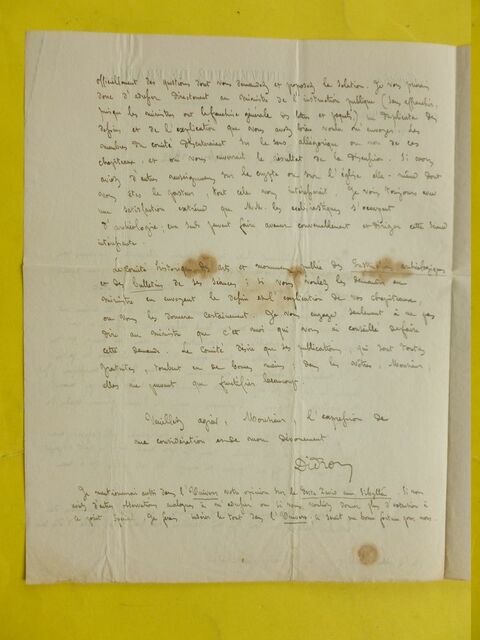 officiellement des questions dont vous demandez et proposez la solution. Je vous prierai
donc d'adresser directement au ministre de l'instruction publique (sans affranchir,
puisque les ministres ont la franchise générale des lettres et paquets), un duplicata des
dessins et de l'explication que vous avez bien voulu m'envoyer. Les
membres du comité discuteraient sur le sens allégorique ou non de ces
chapiteaux, et on vous enverrait le résultat de la discussion. Si vous
aviez d'autres renseignemens sur la crypte ou sur l'église elle-même dont
vous êtes le pasteur, tout cela nous intéresserait. Je vois toujours avec
une satisfaction extrême que M.M. les ecclésiastiques s'occupent
d'archéologie; eux seuls peuvent faire avancer convenablement et diriger cette science
intéressante.
Le Comité historique des arts et monumens publie des Instructions archéologiques
et des bulletins de ses séances; si vous voulez les demander au
ministre en envoyant le dessin et l'explication de vos chapiteaux,
on vous les donnera certainement. Je vous engage seulement à ne pas
dire au ministre que c'est moi qui vous ai conseillé de faire
cette demande. Le Comité désire que ses publications, qui sont toutes
gratuites, tombent en de bonnes mains; dans les vôtres, Monsieur,
elles ne peuvent que fructifier beaucoup.
Veuillez agréer, Monsieur, l'expression de
ma considération et de mon dévouement
Didron
Je mentionnerai aussi dans l'Univers votre opinion sur le Teste David cum Sibylla. Si vous
avez d'autres observations analogues à m'adresser ou si vous vouliez donner plus d'extension à
ce point, je ferais insérer le tout dans l'Univers. ce serait une bonne fortune pour nous.